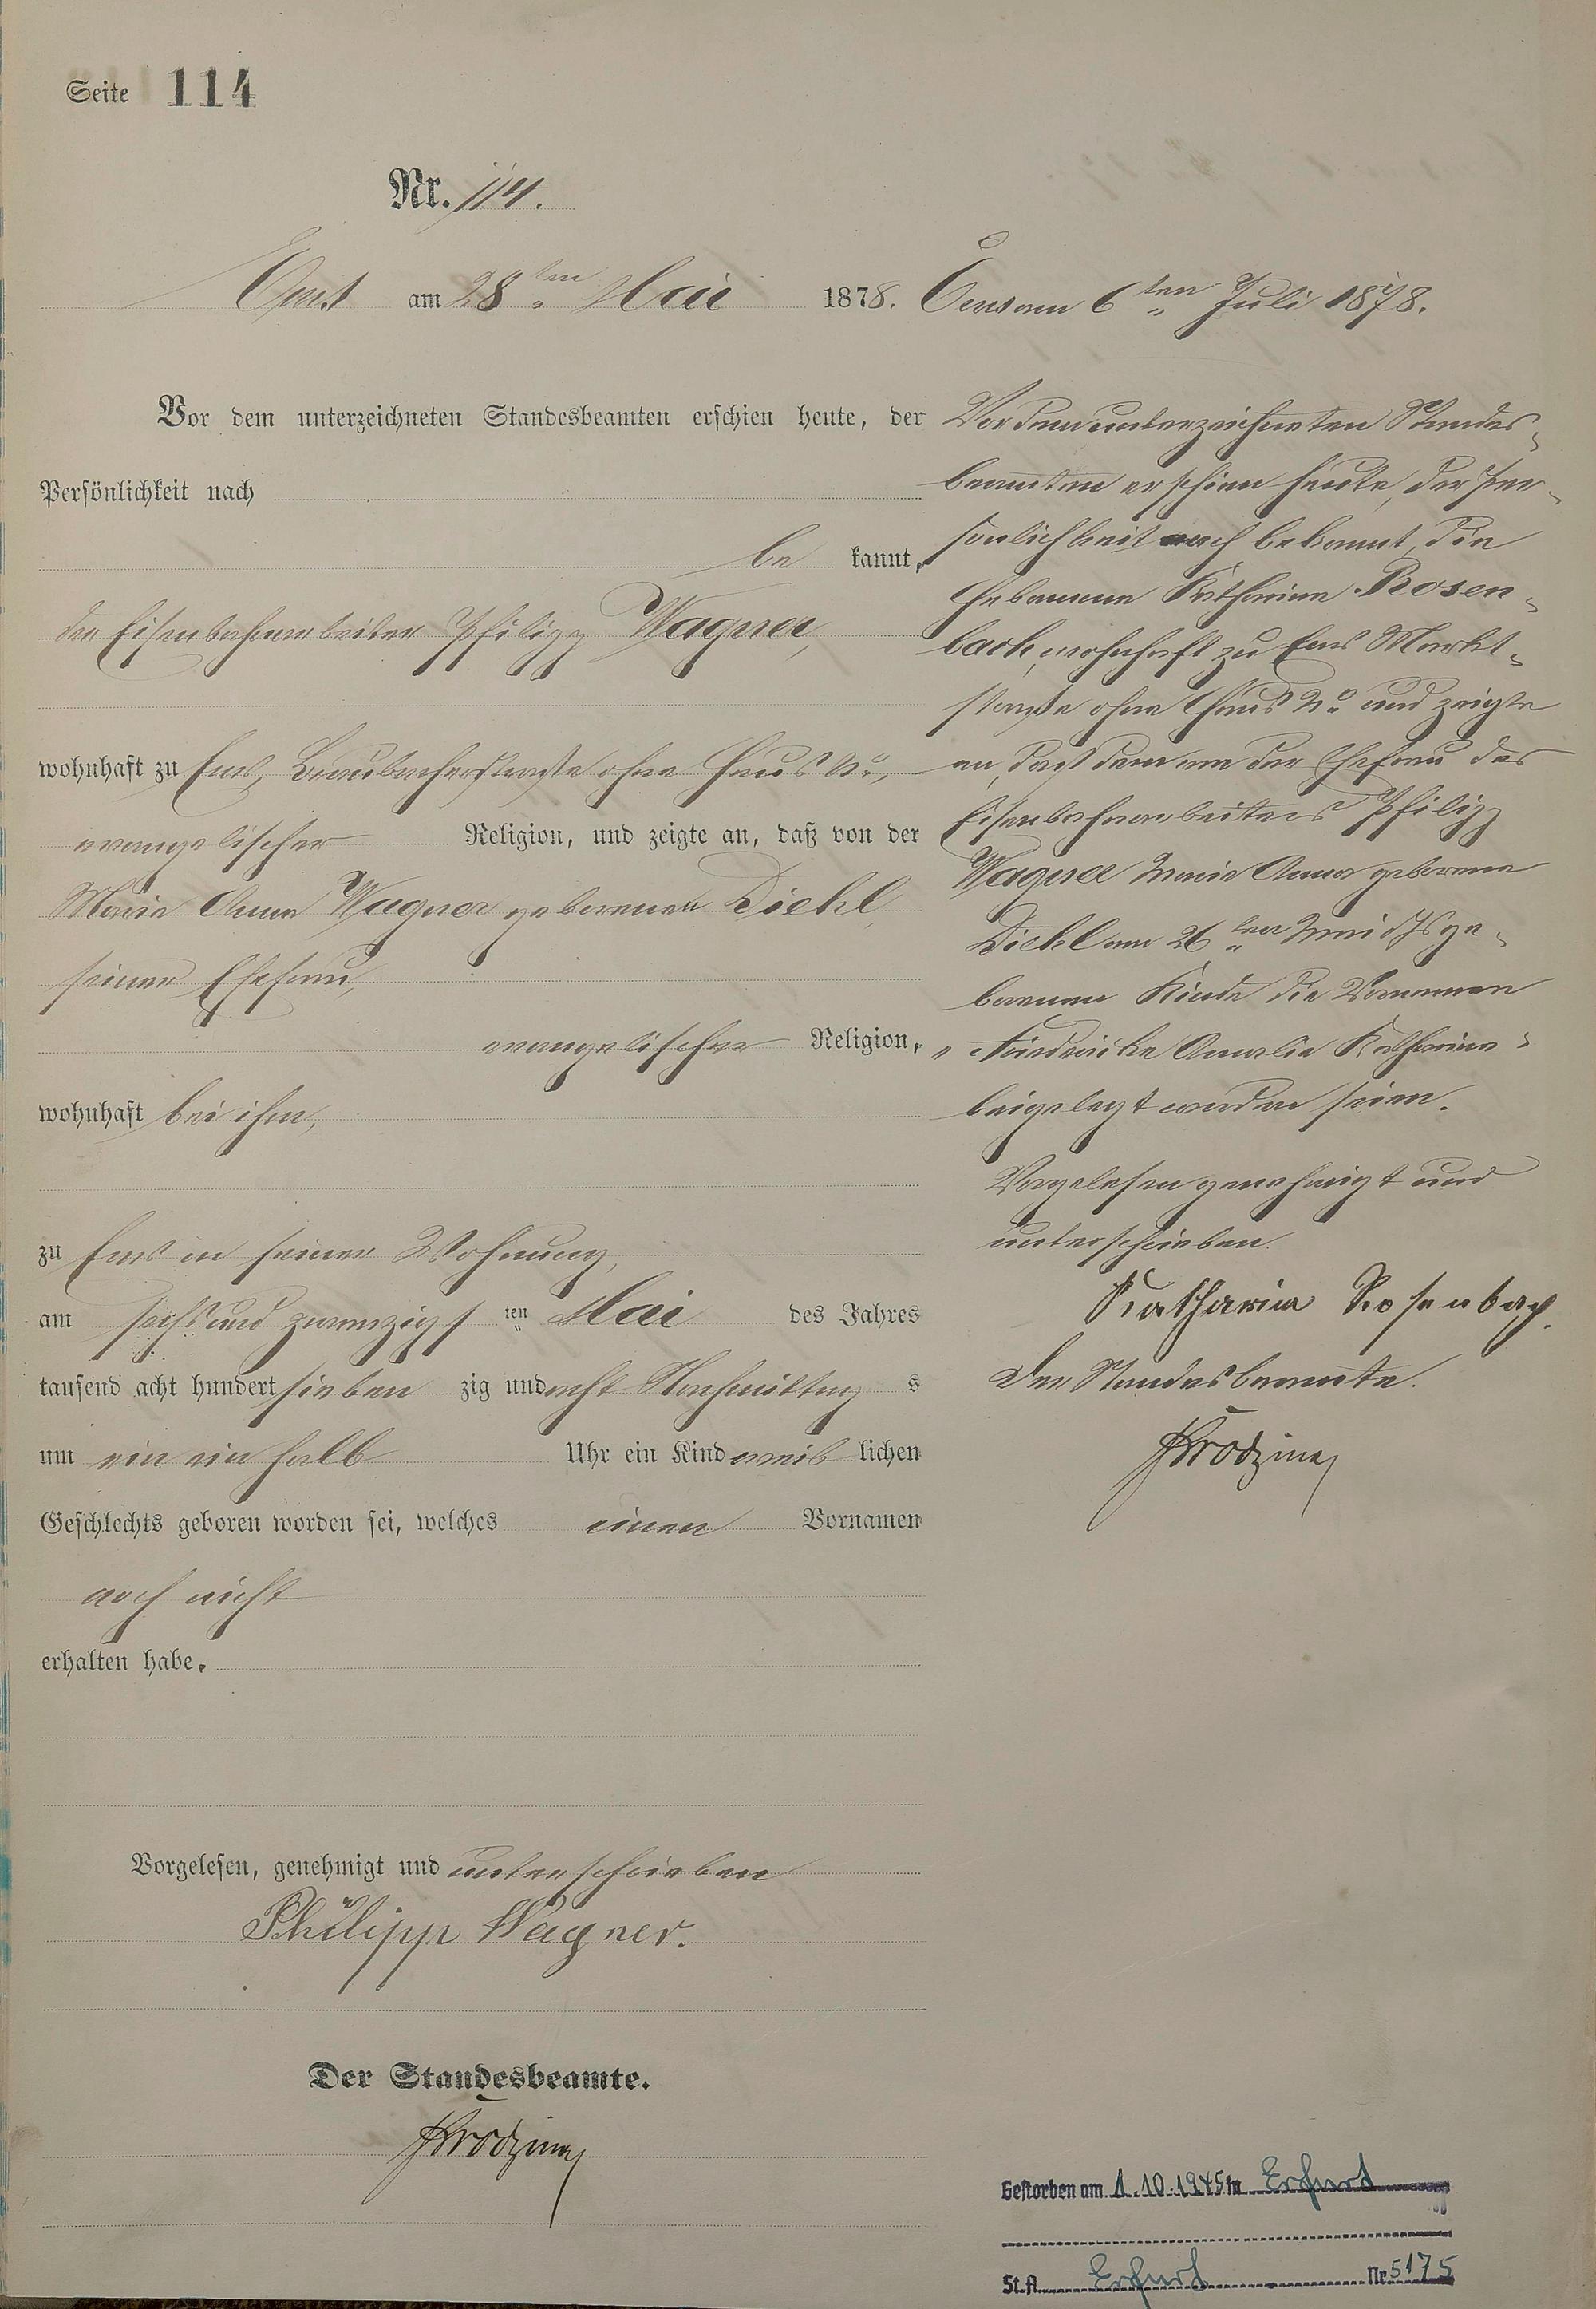 Seite 114
Nr. 114.
Ems am 28ten Mai 1878.
Vor dem unterzeichneten Standesbeamten erschien heute, der
Persönlichkeit nach
be kannt,
der Eisenbahnarbeiter Philipp Wagner,
wohnhaft zu Ems, Braubacherstraße ohne Haus No,
evangelischer Religion, und zeigte an, daß von der
Marie Anna Wagner geborenen Diehl,
seiner Ehefrau,
evangelischer Religion,
wohnhaft bei ihm,
zu Ems in seiner Wohnung,
am sechs und zwanzigsten Mai des Jahres
tausend acht hundert sieben zig und acht Nachmittag s
um ein ein halb Uhr ein Kind weib lichen
Geschlechts geboren worden sei, welches einen Vornamen
noch nicht
erhalten habe.
Vorgelesen, genehmigt und unterschrieben
Philipp Wagner.
Der Standesbeamte.
Ems am 6ten Juli 1878.
Vor dem unterzeichneten Standes-
beamten erschien heute, der Per-
sönlichkeit nach bekannt, die
Hebamme Katharina Rosen-
bach, wohnhaft zu Ems Markt-
straße ohne Haus No und zeigte
an, daß dem von der Ehefrau des
Eisenbahnarbeiters Philipp
Wagner Marie Anna geborene
Diehl am 26ten Mai ge-
borenen Kinde die Vornamen
"Friedericke Amalie Katharina"
beigelegt worden seien.
Vorgelesen genehmigt und
unterschrieben.
Katharina Rosenbach.
Der Standesbeamte.
Gestorben am 1.10.1945 in Erfurt
St.A. Erfurt Nr. 5175